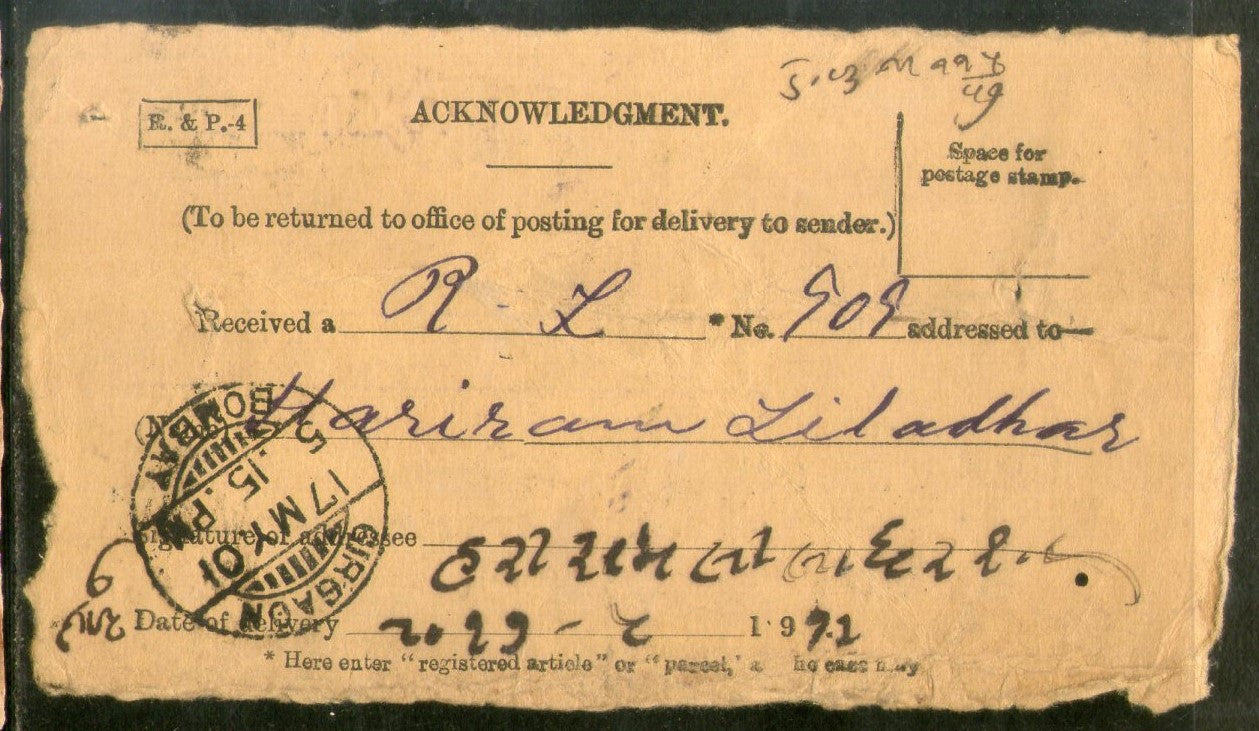 R. & P.-4
ACKNOWLEDGMENT.
Space for
postage stamp.
(To be returned to office of posting for delivery to sender.)
Received a R - L * No. 909 addressed to
Hariram Liladhar
BOMBAY
5
15. PM
17 MY 01
GIRGAON
Signature of addressee
Date of delivery 19
* Here enter "registered article" or "parcel," a he case may